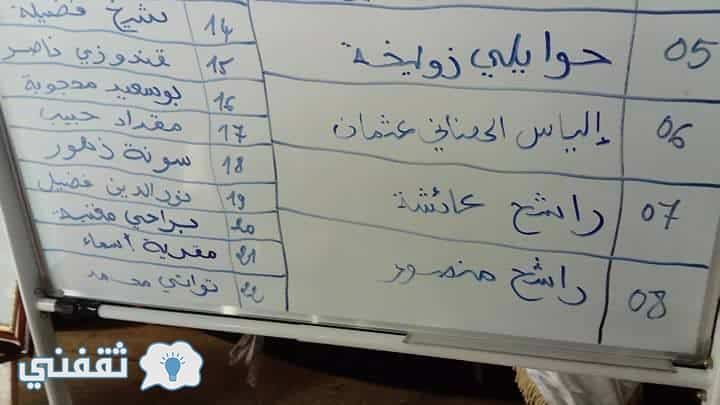 05 حوايلي زوليخة
06 إلياس الحسناني عثمان
07 راشح عائشة
08 راشح منصور
14 شيخ فضيلة
15 قندوزي ناصر
16 بوسعيد محجوبة
17 مقداد حبيب
18 سونة زهور
19 نورالدين فضيل
20 براحي
21 مقدية أسماء
22 تواتي محمد
ثقفني